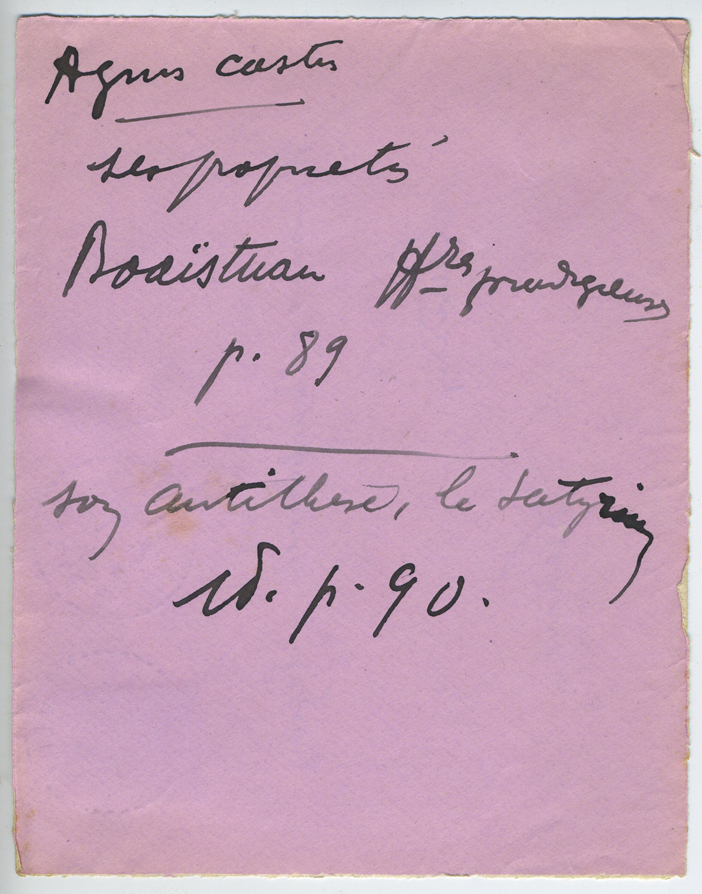 Agnus castus
ses propriétés
Boaïstuau Hres prodigieuses
p. 89
son antithèse, le satyrion
id. p. 90.